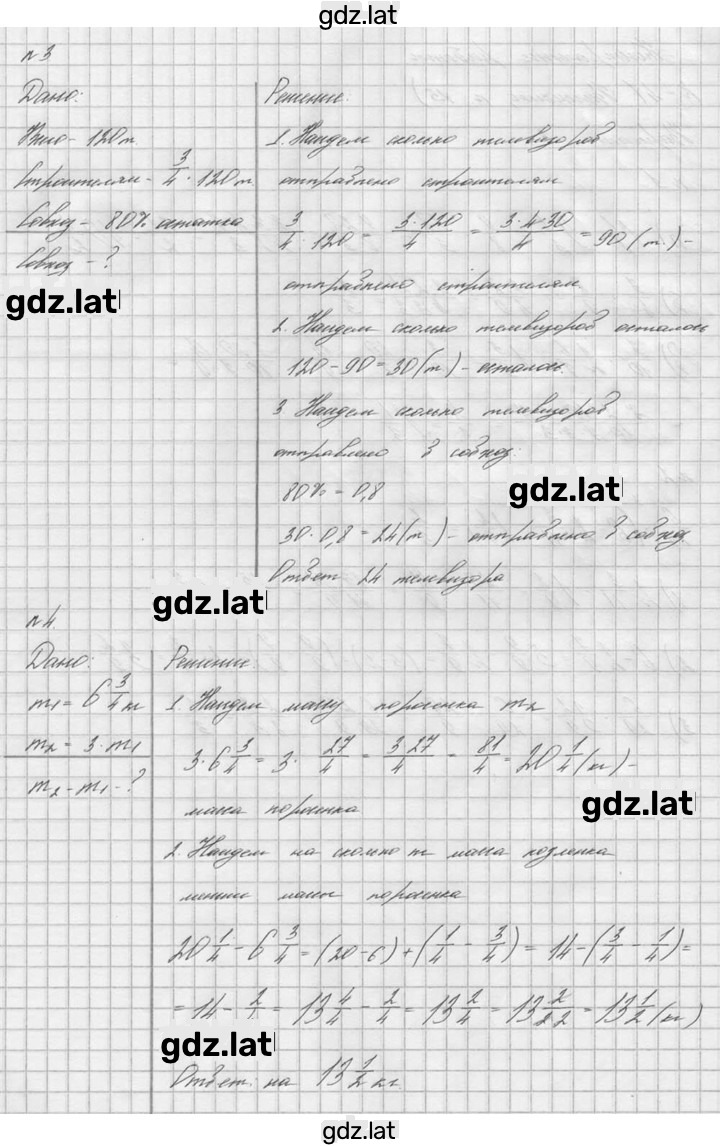 gdz.lat
n 3
Дано:
Решение:
Было - 120 т.
Строителям - 3/4 · 120 т.
Совхоз - 80% остатка
Совхоз - ?
gdz.lat
1. Найдем сколько телевизоров
отправлено строителям
3/4 · 120 = 3·120/4 = 3·4·30/4 = 90 (т.) -
отправлено строителям.
2. Найдем сколько телевизоров осталось
120 - 90 = 30 (т) - осталось.
3 Найдем сколько телевизоров
отправлено в совхоз:
80% = 0,8
gdz.lat
30 · 0,8 = 24 (т) - отправлено в совхоз
Ответ 24 телевизора
gdz.lat
n 4.
Дано:
Решение:
m1 = 6 3/4 кг
m2 = 3 · m1
m2 - m1 - ?
1. Найдем массу поросенка m2
3 · 6 3/4 = 3 · 27/4 = 3·27/4 = 81/4 = 20 1/4 (кг) -
масса поросенка
gdz.lat
2. Найдем на сколько m масса козленка
меньше массы поросенка
20 1/4 - 6 3/4 = (20 - 6) + (1/4 - 3/4) = 14 - (3/4 - 1/4) =
= 14 - 2/4 = 13 4/4 - 2/4 = 13 2/4 = 13 2/2·2 = 13 1/2 (кг)
gdz.lat
Ответ: на 13 1/2 кг
gdz.lat